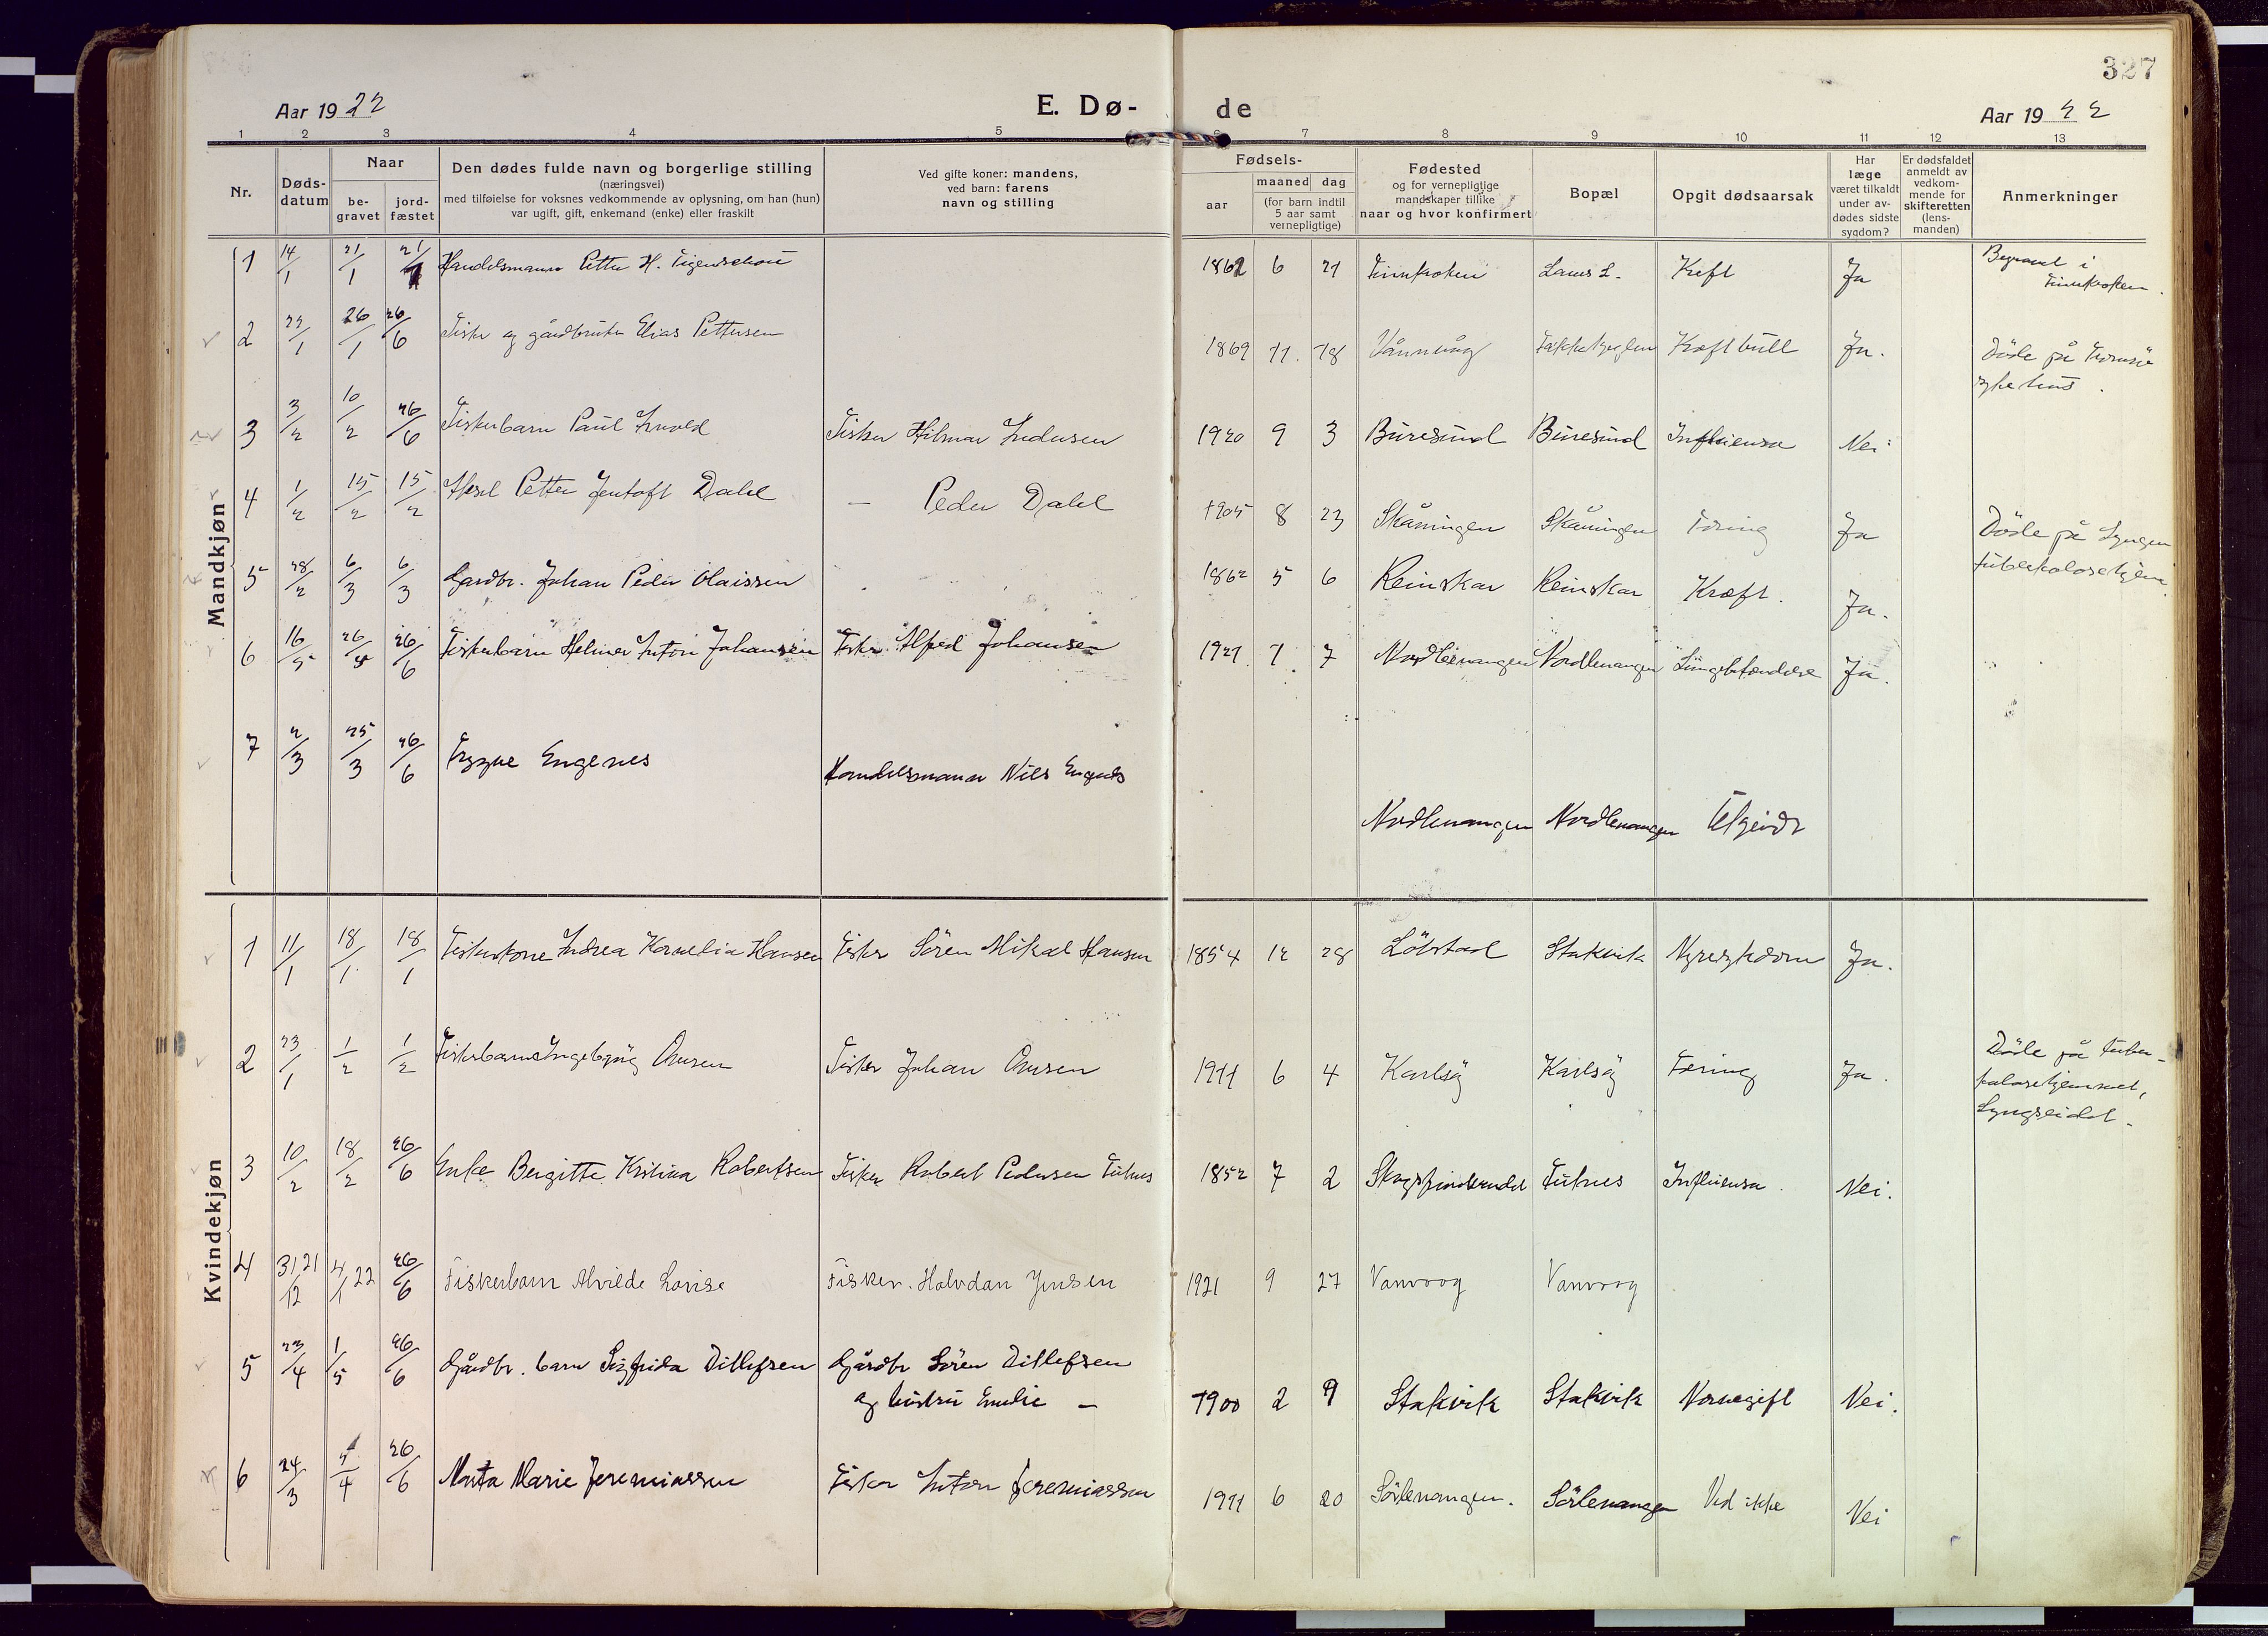 327
Aar 1922 E. Dø- de Aar 1922
1 2 3 4 5 6 7 8 9 10 11 12 13
Nr.
Døds-
datum
Naar
be-
gravet
jord-
fæstet
Den dødes fulde navn og borgerlige stilling
(næringsvei)
med tilføielse for voksnes vedkommende av oplysning, om han (hun)
var ugift, gift, enkemand (enke) eller fraskilt
Ved gifte koner: mandens,
ved barn: farens
navn og stilling
Fødsels-
aar
maaned dag
(for barn indtil
5 aar samt
vernepligtige)
Fødested
og for vernepligtige
mandskaper tillike
naar og hvor konfirmert
Bopæl
Opgit dødsaarsak
Har
læge
været tilkaldt
under av-
dødes sidste
sygdom?
Er dødsfaldet
anmeldt av
vedkom-
mende for
skifteretten
(lens-
manden)
Anmerkninger
Mandkjøn
1 14/1 21/1 21/1 Handelsmann Petter H. 1862 6 21 Finnkroken Kreft Ja Begravet i
Finnkroken.
2 22/1 26/1 26/6 Fisker og gårdbruker Elias Pettersen 1869 11. 18 Vannvåg Kræftbull Ja. Döde på Tromsö
sykehus.
3 3/2 10/2 26/6 Fiskerbarn Paul Arnold Fisker Hilmar Andersen 1920 9 3 Buresund Buresund Influensa Nei
4 1/2 15/2 15/2 Aksel Petter Jentoft Dahl — Peder Dahl 1905 8 23 Skåningen Skåningen Tæring Ja Döde på Lyngen
tuberkolosehjem
5 28/2 6/3 6/3 Gardbr. Johan Peder Olaissen 1862 5 6 Reinskar Reinskar Kræft. Ja.
6 16/5 26/4 26/6 Fiskerbarn Helmer Anton Johansen Fisker Alfred Johansen 1921. 7 Nordlenangen Nordlenangen Lungebetændelse Ja.
7 2/3 25/3 26/6 Trygve Engenes Handelsmann Nils Engenes
Nordlenangen Nordlenangen
Kvindekjøn
1 11/1 18/1 18/1 Fiskerkone Andrea Kornelia Hansen Fisker Sören Mikal Hansen 1854 12 28 Stakvik Nyresykdom Ja.
2 23/1 1/2 1/2 Fiskerbarn Ingebjörg Fisker Johan 1911 6 4 Karlsöy Karlsöy Tæring Ja. Döde på tuber-
kolosehjemmet,
Lyngseidet.
3 10/2 18/2 26/6 Enke Bergitte Kristina Robertsen Fisker Robert Pedersen 1852 7 2 Influensa. Nei.
4 31/12 21 4/1 22 26/6 Fiskerbarn Alvilde Lovise Fisker. Halvdan Jensen 1921 9 27 Vanvaag Vanvaag
5 23/4 1/5 26/6 Gårdbr. barn Sigfrida Ditlefsen Gårdbr Sören Ditlefsen
og hustru Emelie — 1900 2 9 Stakvik Stakvik Nei.
6 24/3 26/6 Marta Marie Jeremiassen Fisker Anton Jeremiassen 1911 6 20 Sörlenangen. Sörlenangen Ved ikke Nei